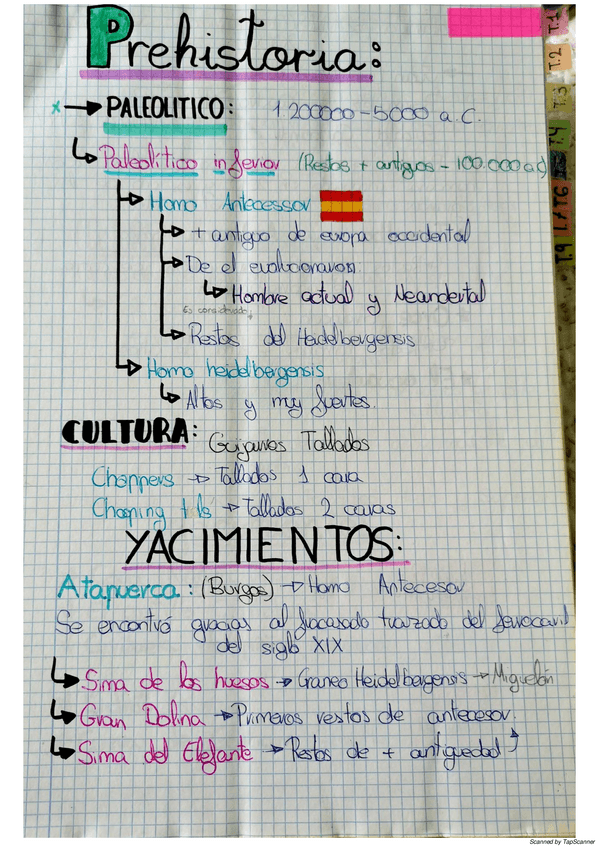 Prehistoria:
T.1
T.2
T.3
T.4
T.6
T.7
T.9
x → PALEOLITICO: 1.200000 - 5000 a.C.
Paleolítico inferior (Restos + antiguos - 100.000 a.c)
Homo Antecessor
+ antiguo de europa occidental
De el evolucionaron:
Hombre actual y Neandertal
Es considerado
Restos del Heidelbergensis
Homo heidelbergensis
Altos y muy fuertes.
CULTURA: Guijarros Tallados
Choppers → Tallados 1 cara
Chopping tls → Tallados 2 caras
YACIMIENTOS:
Atapuerca: (Burgos) → Homo Antecesor
Se encontró gracias al fracasado trazado del ferrocaril
del siglo XIX
Sima de los huesos → Craneo Heidelbergensis → Miguelón
Gran Dolina → Primeros restos de antecesor.
Sima del Elefante → Restos de + antiguedad
Scanned by TapScanner